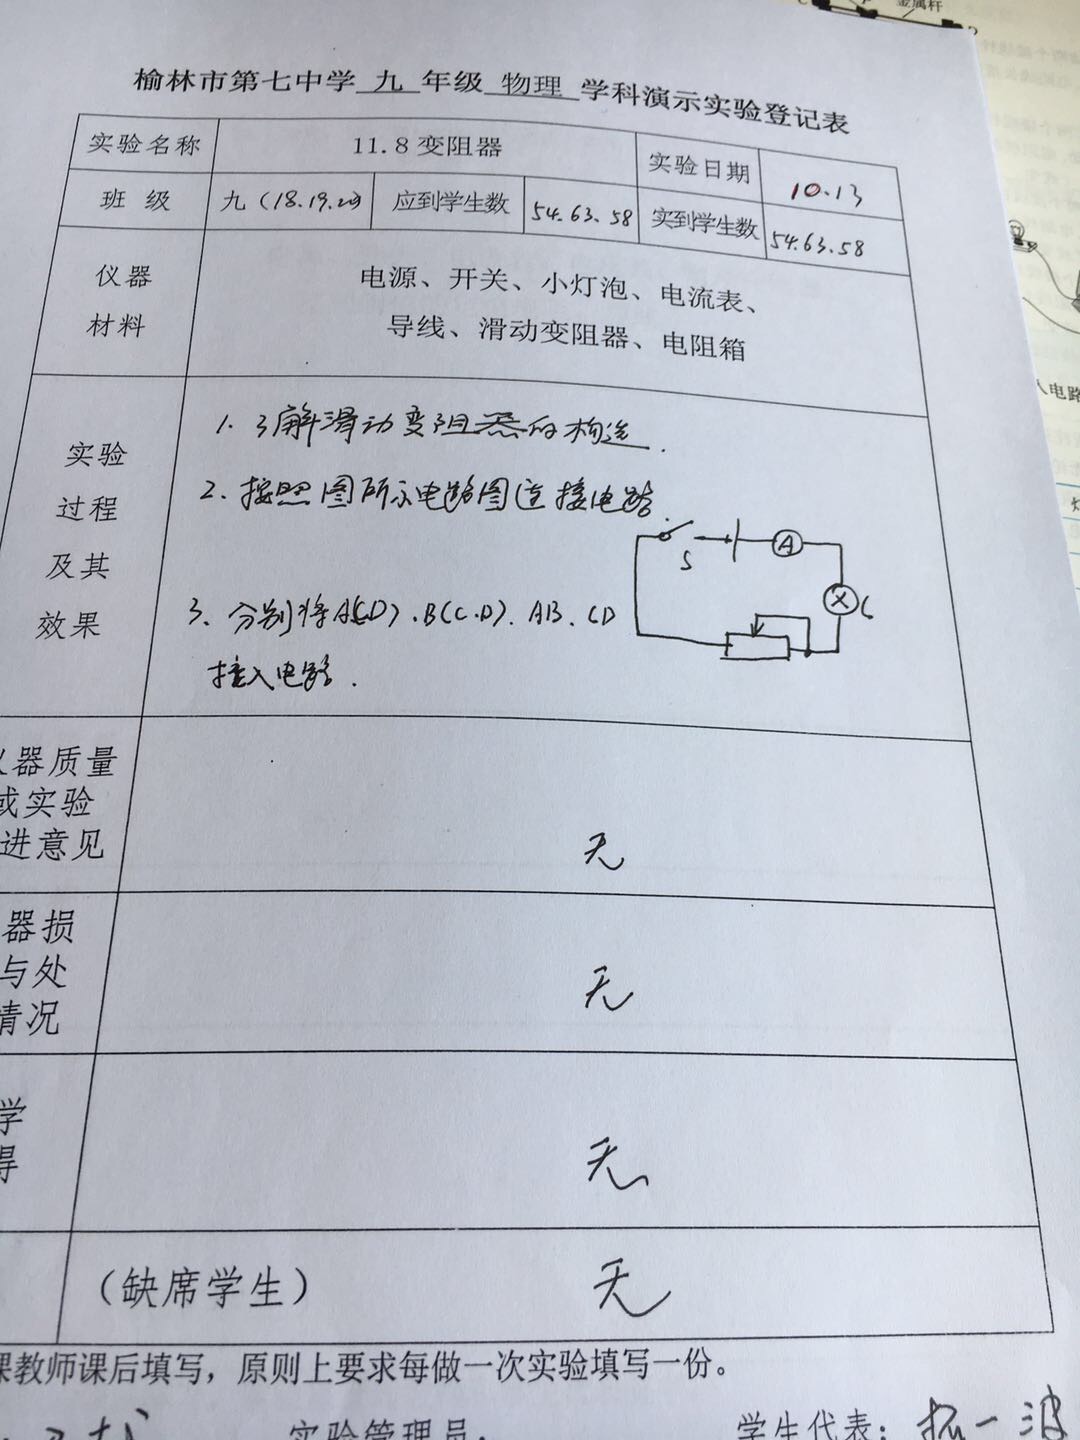 金属杆
榆林市第七中学 九 年级 物理 学科演示实验登记表
实验名称 11.8变阻器 实验日期 10.13
班 级 九(18.19.20) 应到学生数 54.63.58 实到学生数 54.63.58
仪器
材料
电源、开关、小灯泡、电流表、
导线、滑动变阻器、电阻箱
实验
过程
及其
效果
1. 了解滑动变阻器的构造.
2. 按照图所示电路图连接电路.
S A L
3. 分别将A(C.D).B(C.D).AB、CD
接入电路.
器质量
或实验
进意见
无
器损
与处
情况
无
学
得
无
(缺席学生) 无
课教师课后填写，原则上要求每做一次实验填写一份。
实验管理员: 学生代表:
入电路